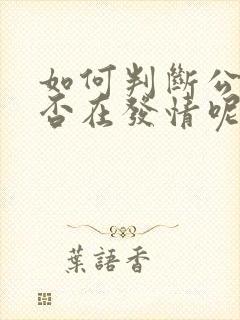 如何判斷公
否在發情呢
葉語香